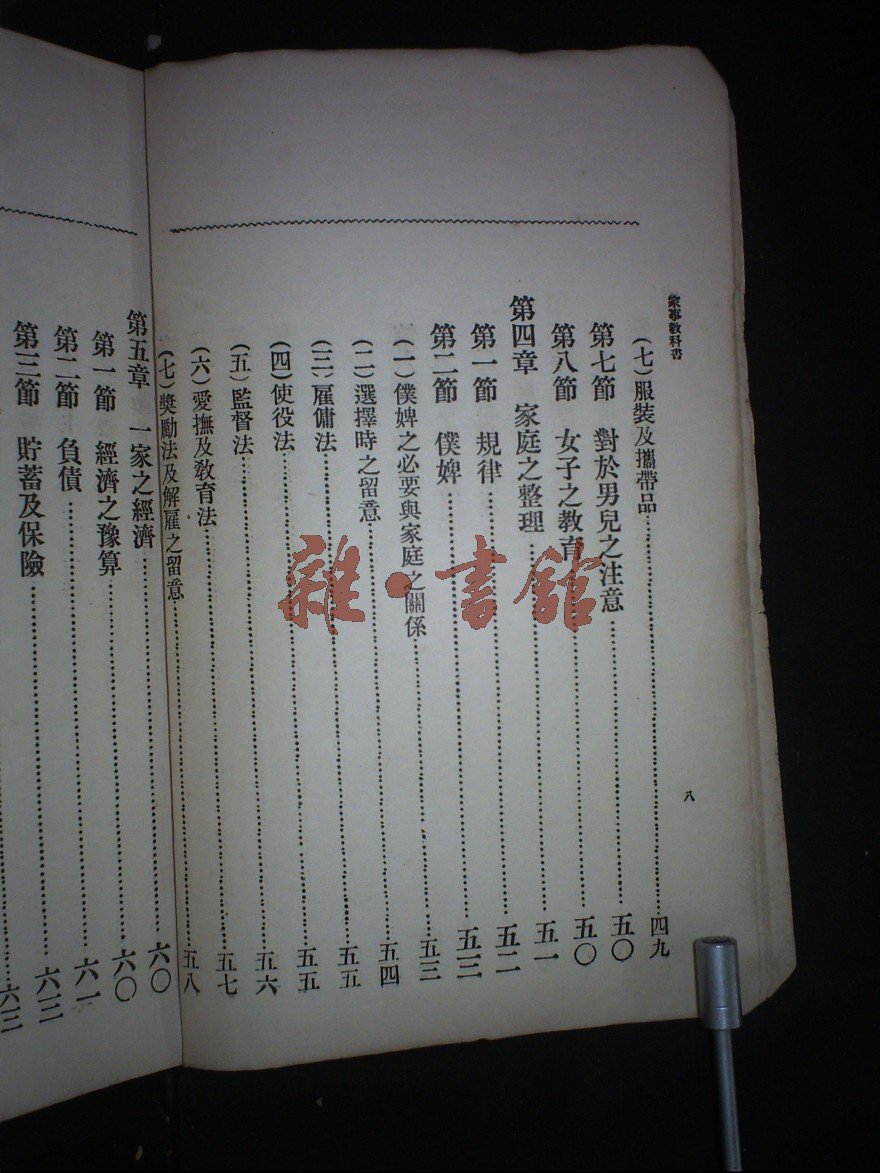 家事教科書
八
(七)服裝及攜帶品……四九
第七節 對於男兒之注意……五〇
第八節 女子之教育……五〇
第四章 家庭之整理……五一
第一節 規律……五二
第二節 僕婢……五三
(一)僕婢之必要與家庭之關係……五三
(二)選擇時之留意……五四
(三)雇傭法……五五
(四)使役法……五五
(五)監督法……五六
(六)愛撫及教育法……五七
(七)獎勵法及解雇之留意……五八
第五章 一家之經濟……六〇
第一節 經濟之豫算……六〇
第二節 負債……六一
第三節 貯蓄及保險……六二
……六三
雜·書館